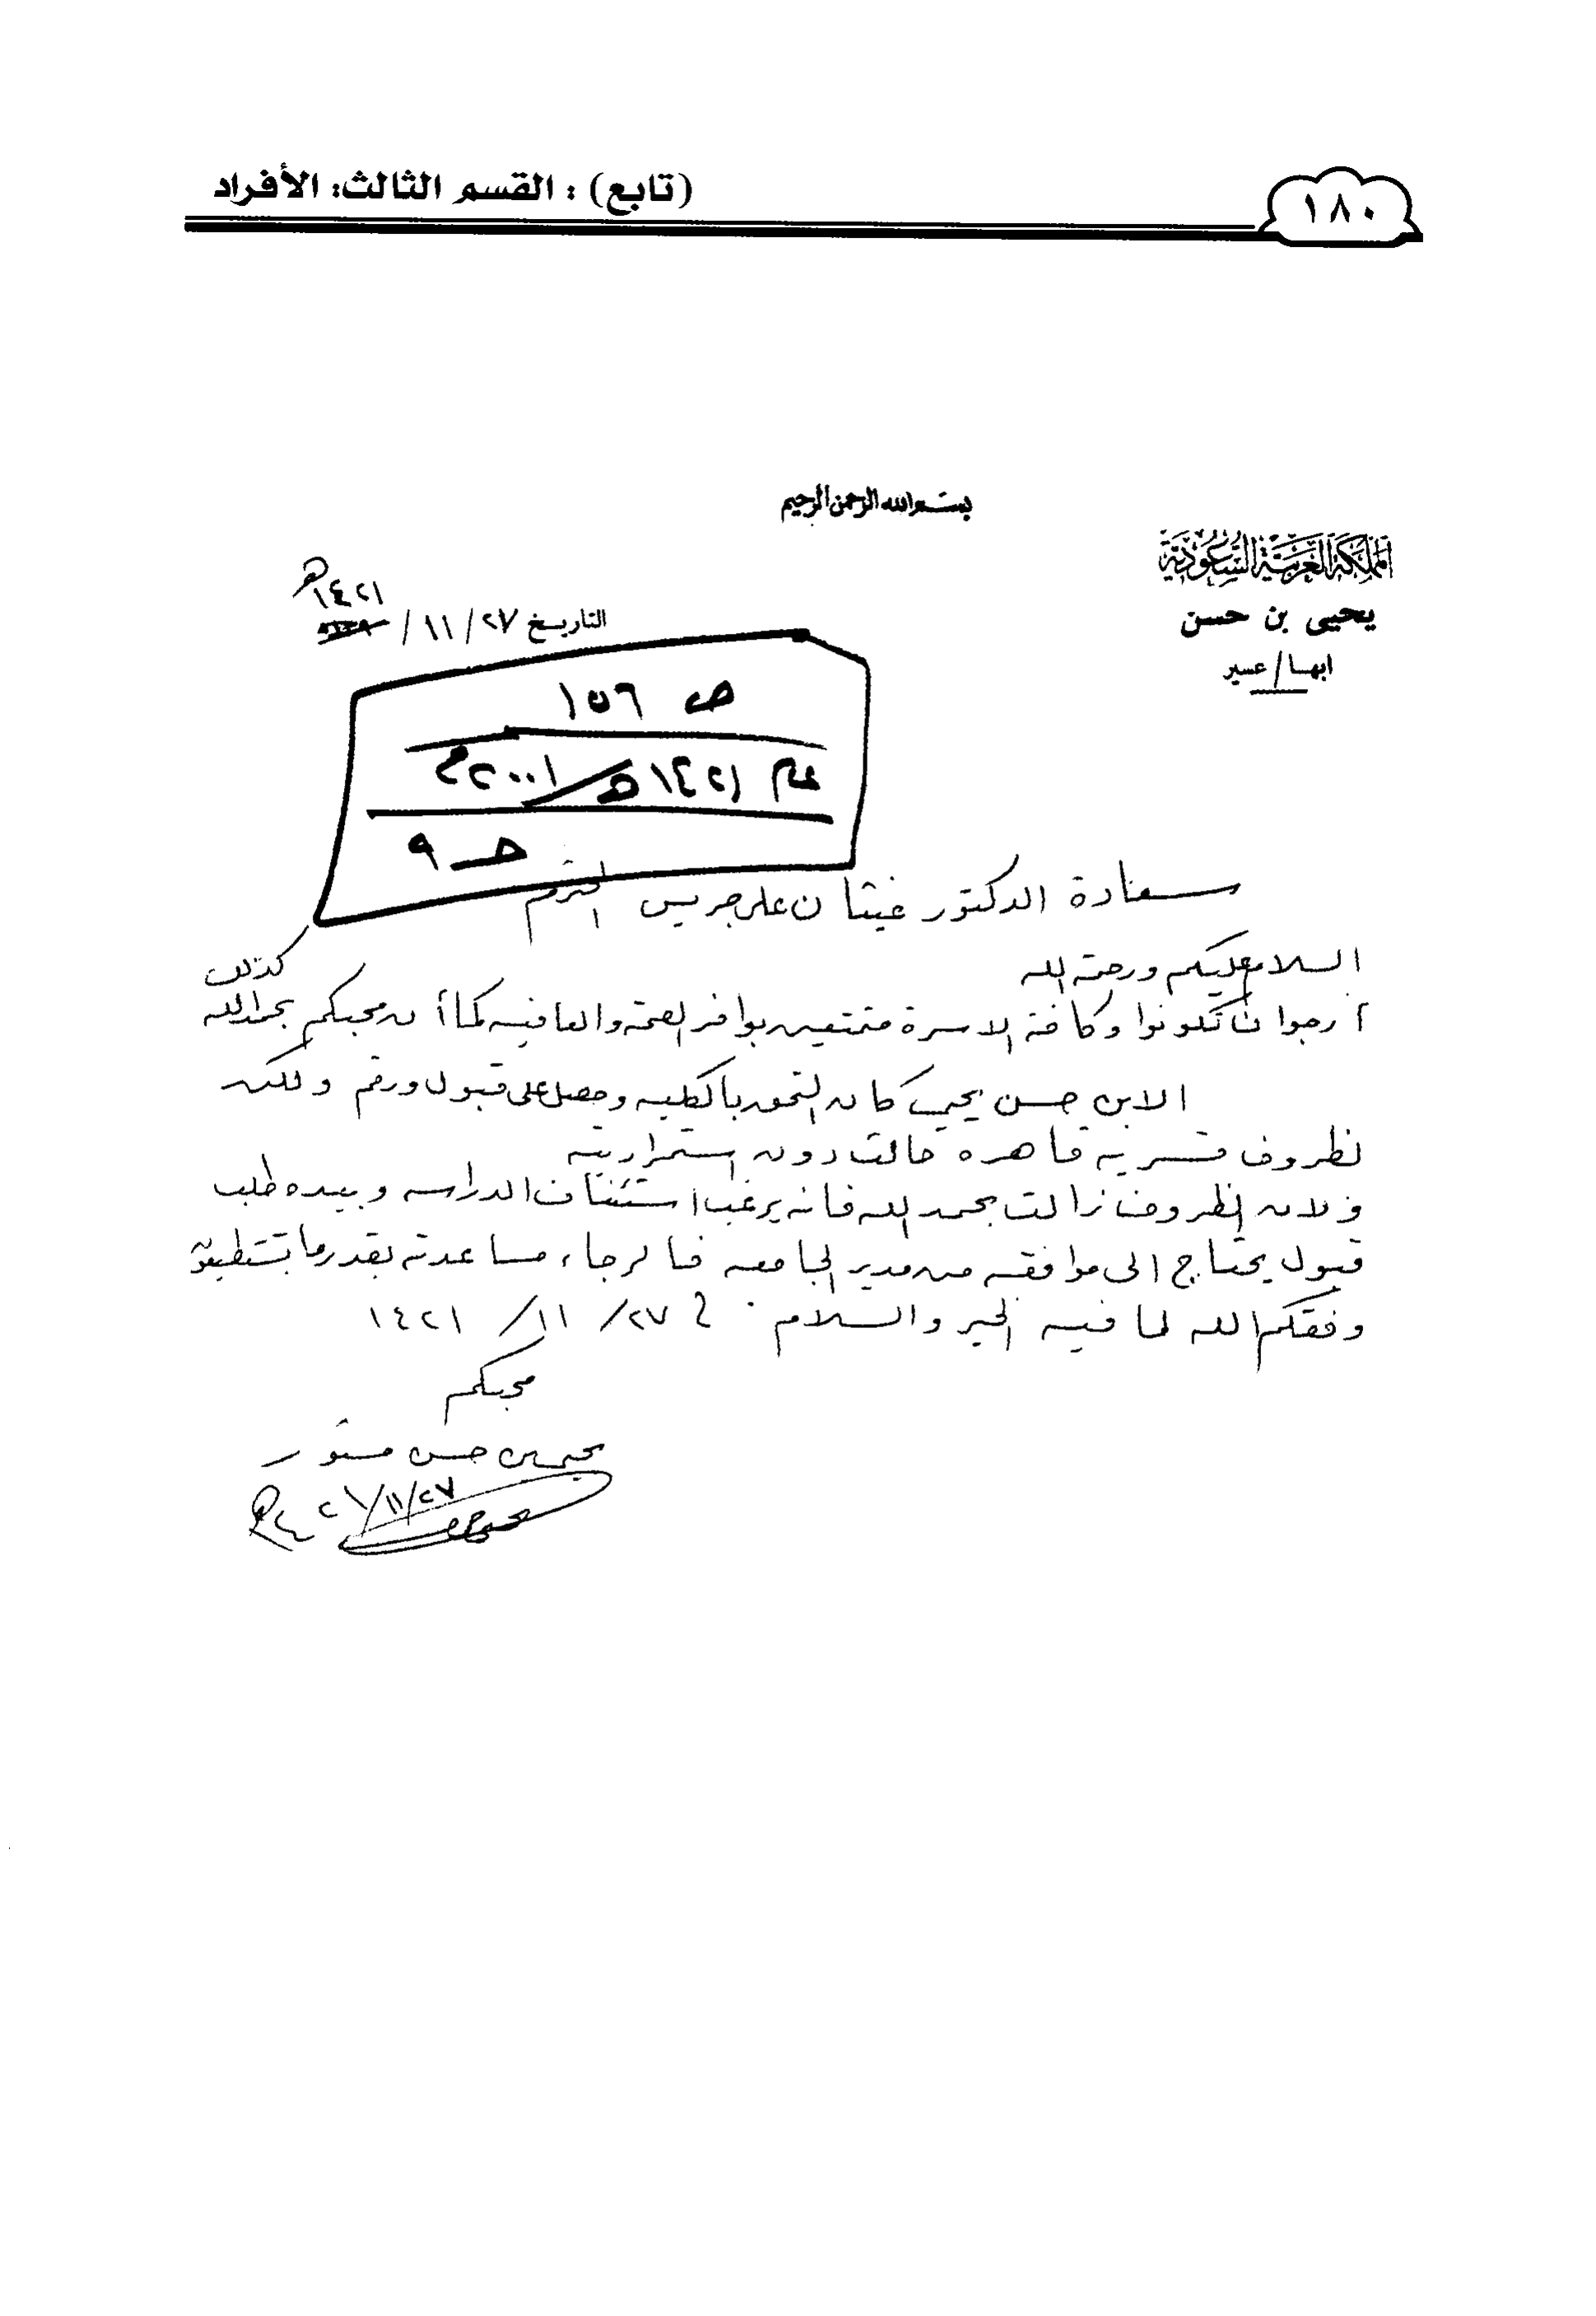 ١٨٠
(تابع) : القسم الثالث: الأفراد
بسم الله الرحمن الرحيم
المملكة العربية السعودية
يحيى بن حسن
ابها / عسير
١٤٢١هـ
التاريخ ٢٧ / ١١ /
ص ١٥٦
عام ١٤٢١هـ/٢٠٠١م
حـ ٩
سعادة الدكتور غيثان علي جريس المحترم
السلام عليكم ورحمة الله
أرجوا أن تكونوا وكافة الاسرة متمتعين بوافر الصحة والعافيه كما أن محبكم بحمد الله كذلك
الابن حسن يحيى كان التحق بالكليه وحصل على قبول ورقم ولكن
لظروف قسريه قاهره حالت دون استمراريته
ولان الظروف زالت بحمد الله فانه يرغب استئناف الدراسه وبيده طلب
قبول يحتاج الى موافقه من مدير الجامعه فالرجاء مساعدته بقدر ما تستطيعون
وفقكم الله لما فيه الخير والسلام . في ٢٧/ ١١/ ١٤٢١
محبكم
يحيى بن حسن مستور
٢٧/١١/٢١